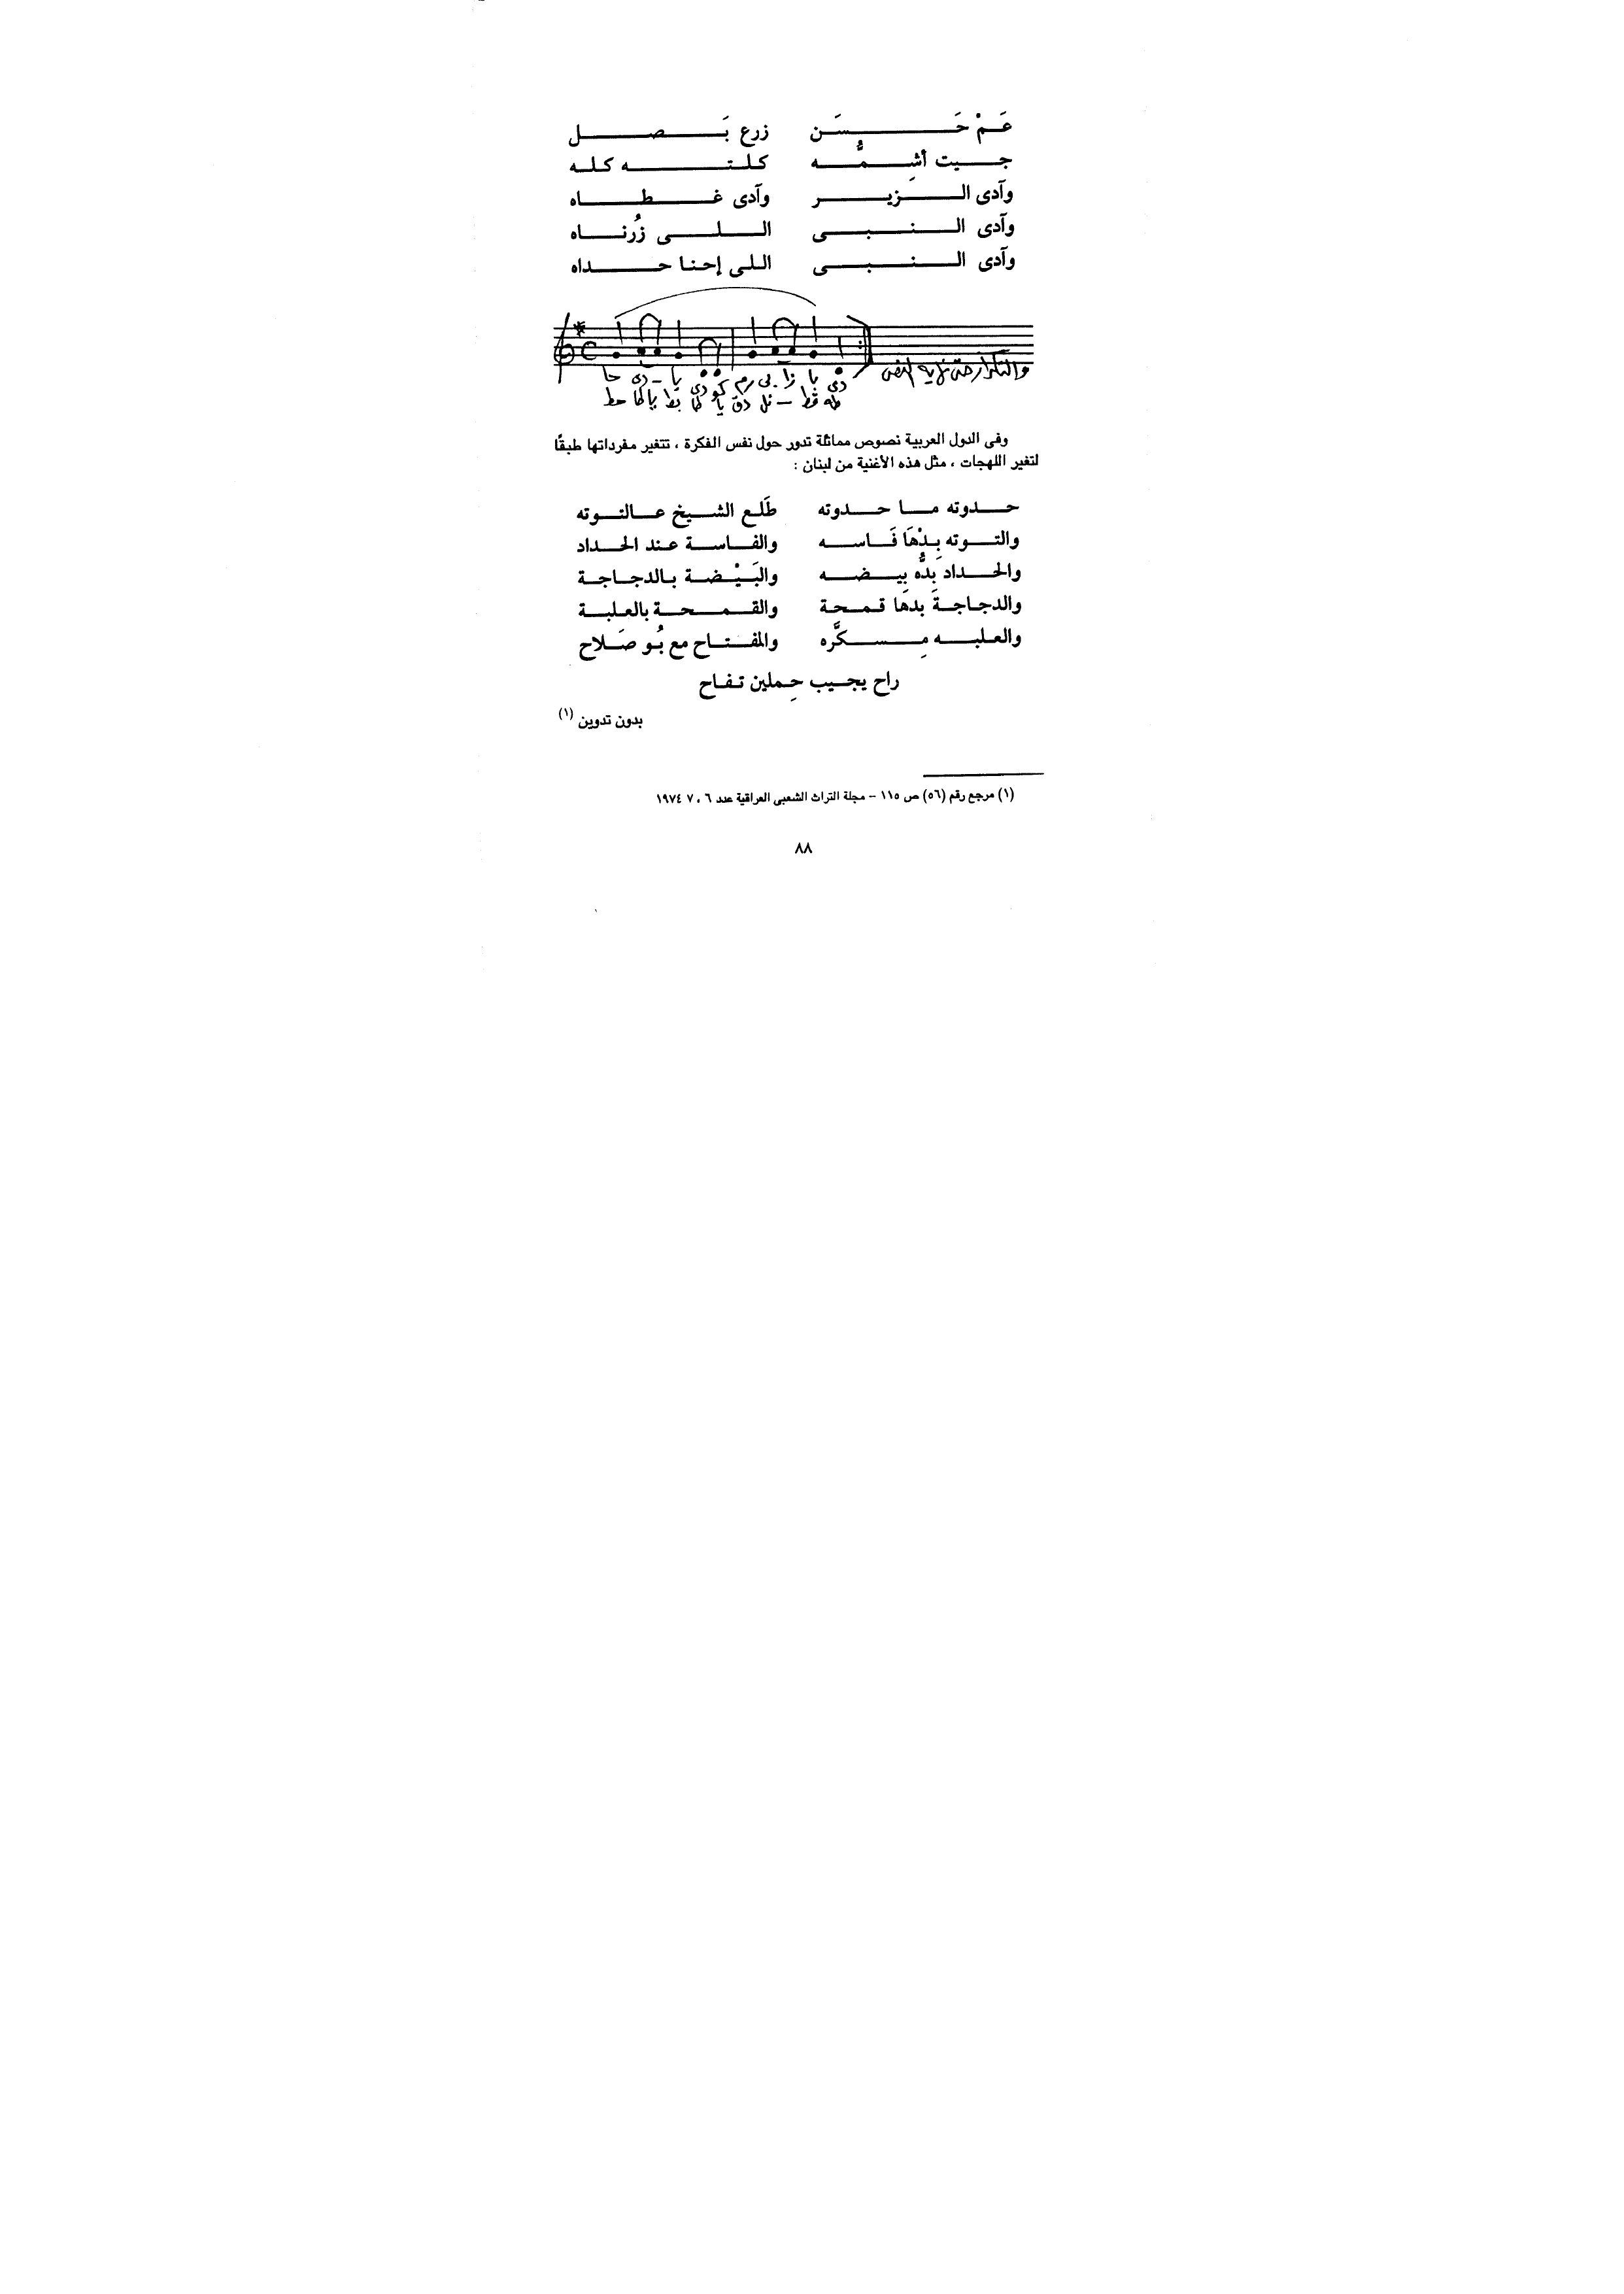 عَم حَسَن زرع بَصل
جيت أشِمُّه كلته كله
وآدى الزير وآدى غطاه
وآدى النبى اللى زُرناه
وآدى النبى اللى إحنا حداه
والتكرار حتى نهاية النص
وفى الدول العربية نصوص مماثلة تدور حول نفس الفكرة ، تتغير مفرداتها طبقًا
لتغير اللهجات ، مثل هذه الأغنية من لبنان :
حدوته ما حدوته طَلع الشيخ عالتوته
والتوته بِدْهَا فَاسه والفاسة عند الحداد
والحداد بِدُّه بيضه والبَيْضة بالدجاجة
والدجاجة بِدهَا قمحة والقمحة بالعلبة
والعلبه مِسكَّره والمفتاح مع بُو صَلاح
راح يجيب حِملين تفاح
بدون تدوين (١)
(١) مرجع رقم (٥٦) ص ١١٥ – مجلة التراث الشعبى العراقية عدد ٦ ، ٧ ١٩٧٤
٨٨